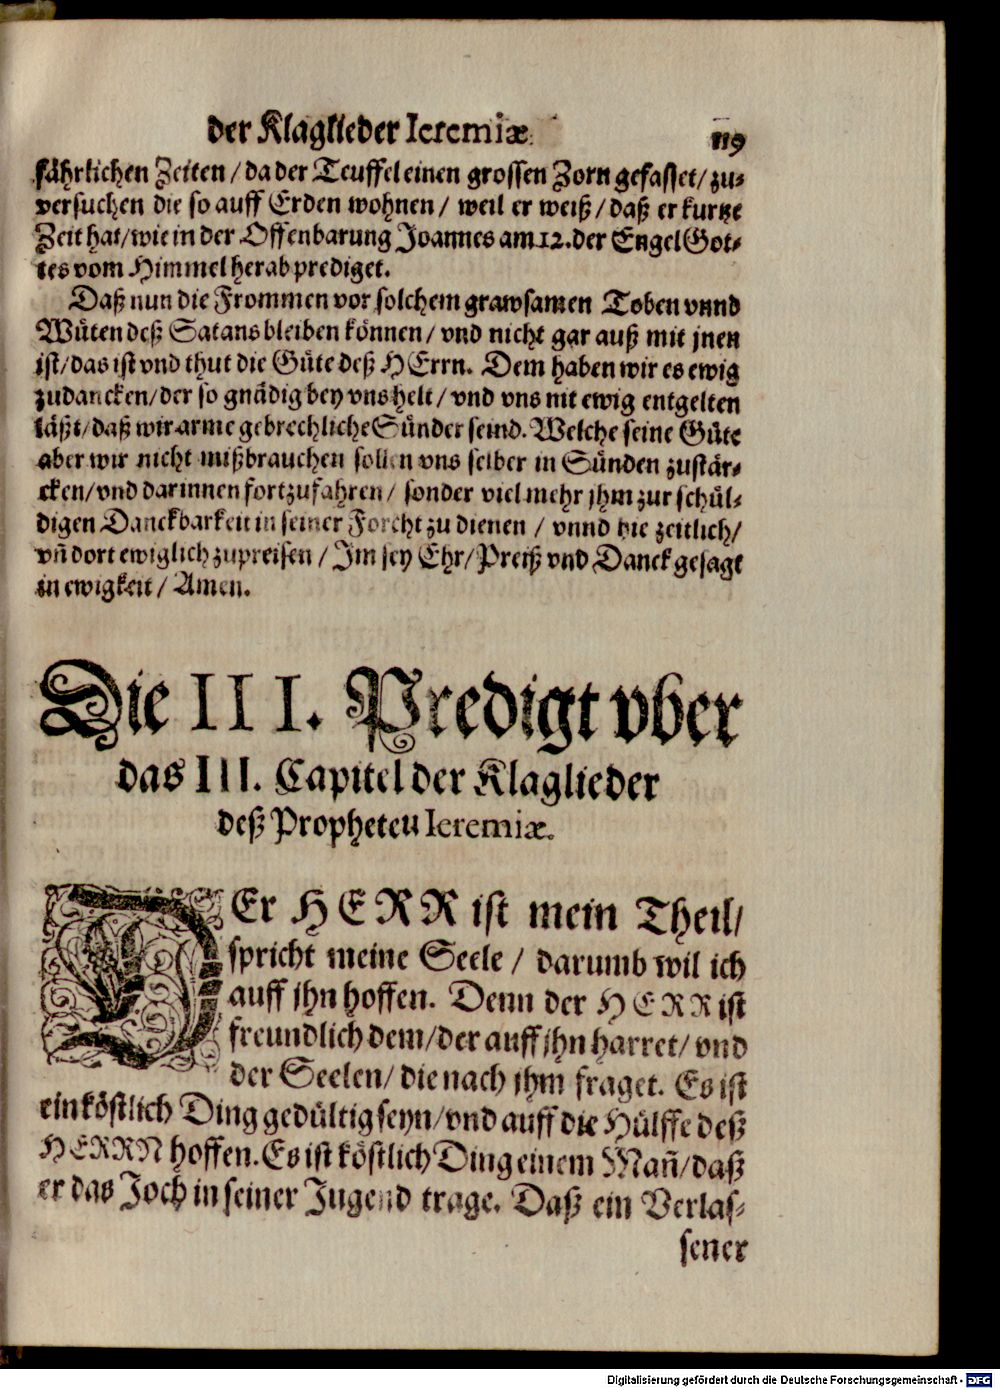 der Klaglieder Ieremiæ. 119
fährlichen Zeiten / da der Teuffel einen grossen Zorn gefasset / zu-
versuchen die so auff Erden wohnen / weil er weiß / daß er kurtze
Zeit hat / wie in der Offenbarung Joannes am 12. der Engel Got-
tes vom Himmel herab prediget.
Daß nun die Frommen vor solchem grawsamen Toben vnnd
Wüten deß Satans bleiben können / vnd nicht gar auß mit jnen
ist / das ist vnd thut die Güte deß HErrn. Dem haben wir es ewig
zudancken / der so gnädig bey vns helt / vnd vns nit ewig entgelten
läßt / daß wir arme gebrechliche Sünder seind. Welche seine Güte
aber wir nicht mißbrauchen sollen vns selber in Sünden zustär-
cken / vnd darinnen fortzufahren / sonder viel mehr jhm zur schül-
digen Danckbarkeit in seiner Forcht zu dienen / vnnd hie zeitlich /
vñ dort ewiglich zupreisen / Im sey Ehr / Preiß vnd Danck gesagt
in ewigkeit / Amen.
Die III. Predigt vber
das III. Capitel der Klaglieder
deß Propheteu Ieremiæ.
DEr HERR ist mein Theil /
spricht meine Seele / darumb wil ich
auff jhn hoffen. Denn der HERR ist
freundlich dem / der auff jhn harret / vnd
der Seelen / die nach jhm fraget. Es ist
ein köstlich Ding gedültig seyn / vnd auff die Hülffe deß
HERRN hoffen. Es ist köstlich Ding einem Mañ / daß
er das Joch in seiner Jugend trage. Daß ein Verlas-
sener
Digitalisierung gefördert durch die Deutsche Forschungsgemeinschaft - DFG